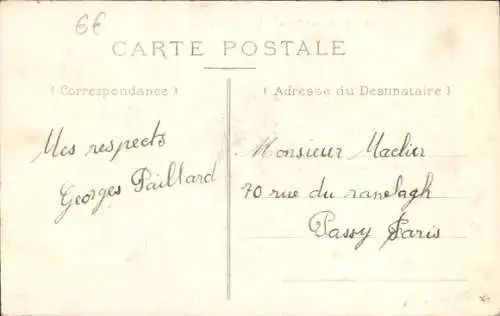 6€
CARTE POSTALE
(Correspondance)
(Adresse du Destinataire)
Mes respects
Georges Paillard
Monsieur
70 rue du ranelagh
Passy Paris